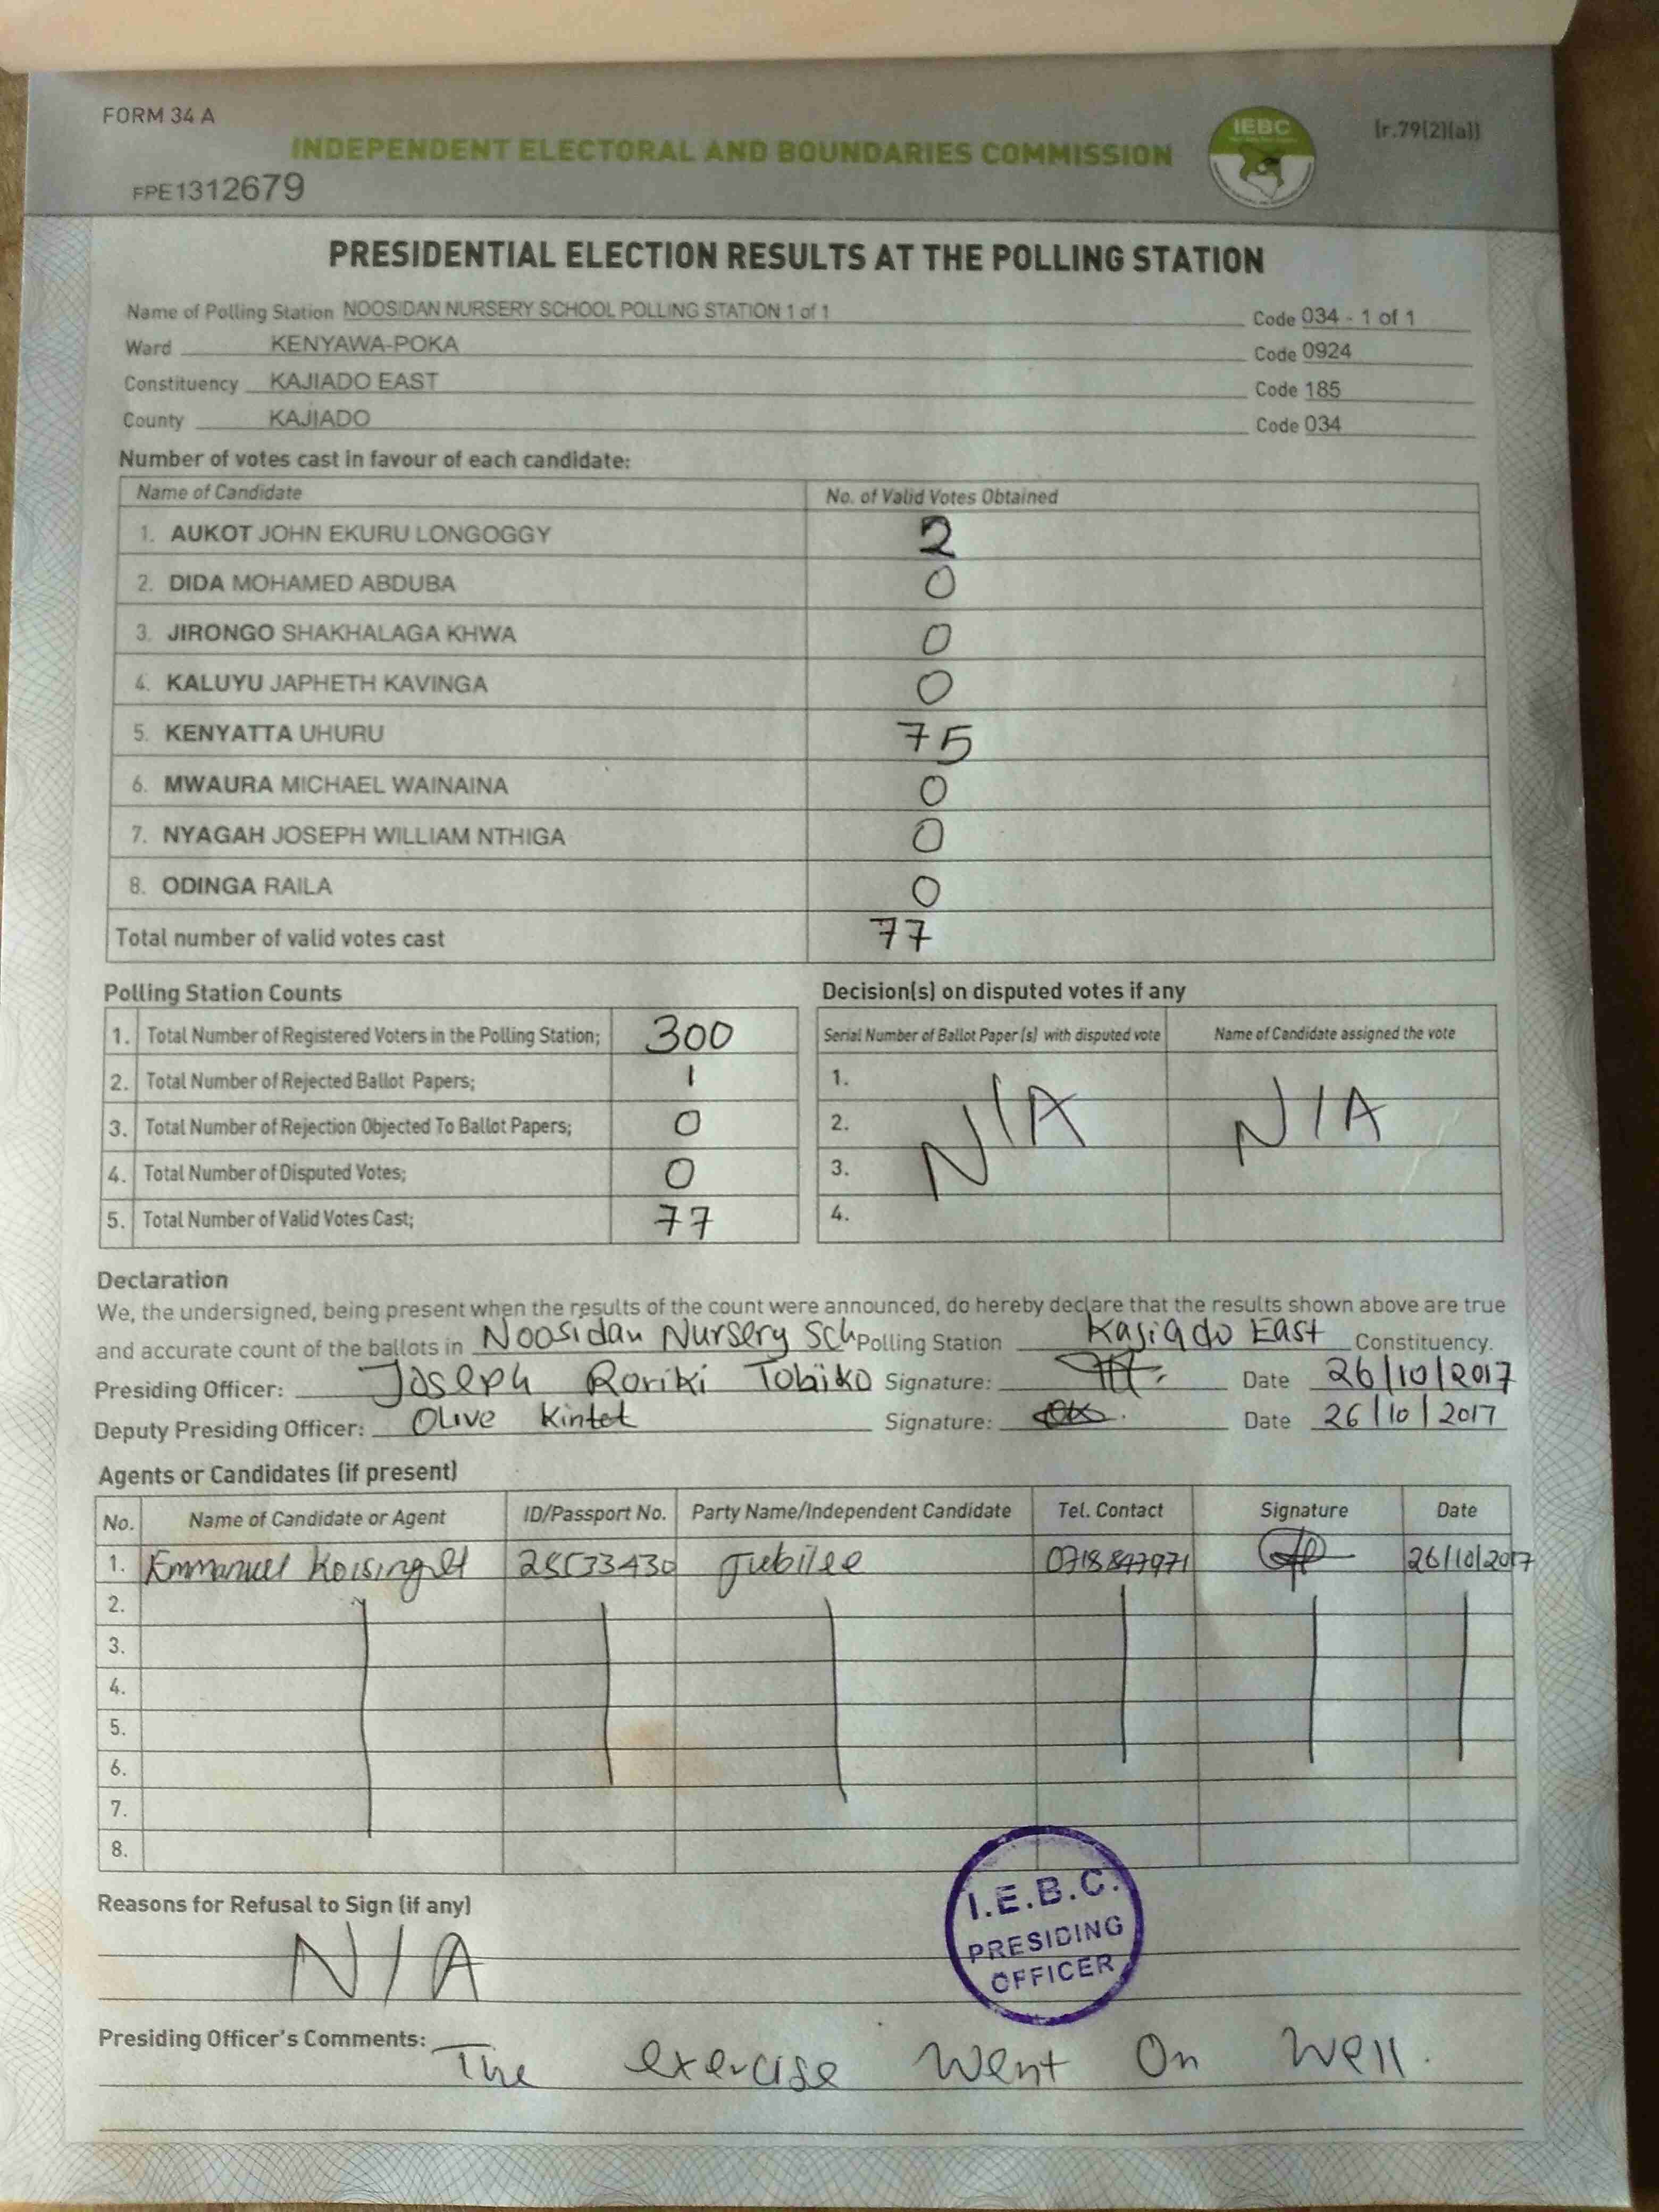 FORM 34 A
INDEPENDENT ELECTORAL AND BOUNDARIES COMMISSION
IEBC
[r.79(2)(a)]
FPE1312679
PRESIDENTIAL ELECTION RESULTS AT THE POLLING STATION
Name of Polling Station NOOSIDAN NURSERY SCHOOL POLLING STATION 1 of 1 Code 034 - 1 of 1
Ward KENYAWA-POKA Code 0924
Constituency KAJIADO EAST Code 185
County KAJIADO Code 034
Number of votes cast in favour of each candidate:
Name of Candidate No. of Valid Votes Obtained
1. AUKOT JOHN EKURU LONGOGGY 2
2. DIDA MOHAMED ABDUBA 0
3. JIRONGO SHAKHALAGA KHWA 0
4. KALUYU JAPHETH KAVINGA 0
5. KENYATTA UHURU 75
6. MWAURA MICHAEL WAINAINA 0
7. NYAGAH JOSEPH WILLIAM NTHIGA 0
8. ODINGA RAILA 0
Total number of valid votes cast 77
Polling Station Counts
1. Total Number of Registered Voters in the Polling Station; 300
2. Total Number of Rejected Ballot Papers; 1
3. Total Number of Rejection Objected To Ballot Papers; 0
4. Total Number of Disputed Votes; 0
5. Total Number of Valid Votes Cast; 77
Decision(s) on disputed votes if any
Serial Number of Ballot Paper (s) with disputed vote Name of Candidate assigned the vote
1.
2. N/A N/A
3.
4.
Declaration
We, the undersigned, being present when the results of the count were announced, do hereby declare that the results shown above are true
and accurate count of the ballots in Noosidan Nursery Sch Polling Station Kajiado East Constituency.
Presiding Officer: Joseph Roriki Tobiko Signature: Date 26/10/2017
Deputy Presiding Officer: Olive Kintet Signature: Date 26/10/2017
Agents or Candidates (if present)
No. Name of Candidate or Agent ID/Passport No. Party Name/Independent Candidate Tel. Contact Signature Date
1. Emmanuel Jubilee 26/10/2017
2.
3.
4.
5.
6.
7.
8.
I.E.B.C.
PRESIDING
OFFICER
Reasons for Refusal to Sign (if any)
N/A
Presiding Officer's Comments: The exercise went on well.